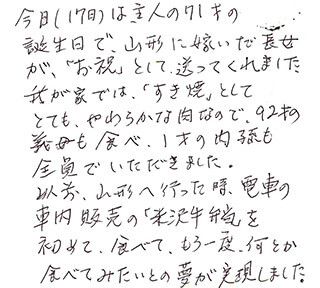 今日(17日)は主人の71才の
誕生日で、山形に嫁いだ長女
が、「お祝」として送ってくれました
我が家では、「すき焼」として
とても、やわらかな肉なので、92才の
義母も食べ、1才の内孫も
全員でいただきました。
以前、山形へ行った時、電車の
車内販売の「米沢牛弁当」を
初めて、食べて、もう一度、何とか
食べてみたいとの夢が実現しました。